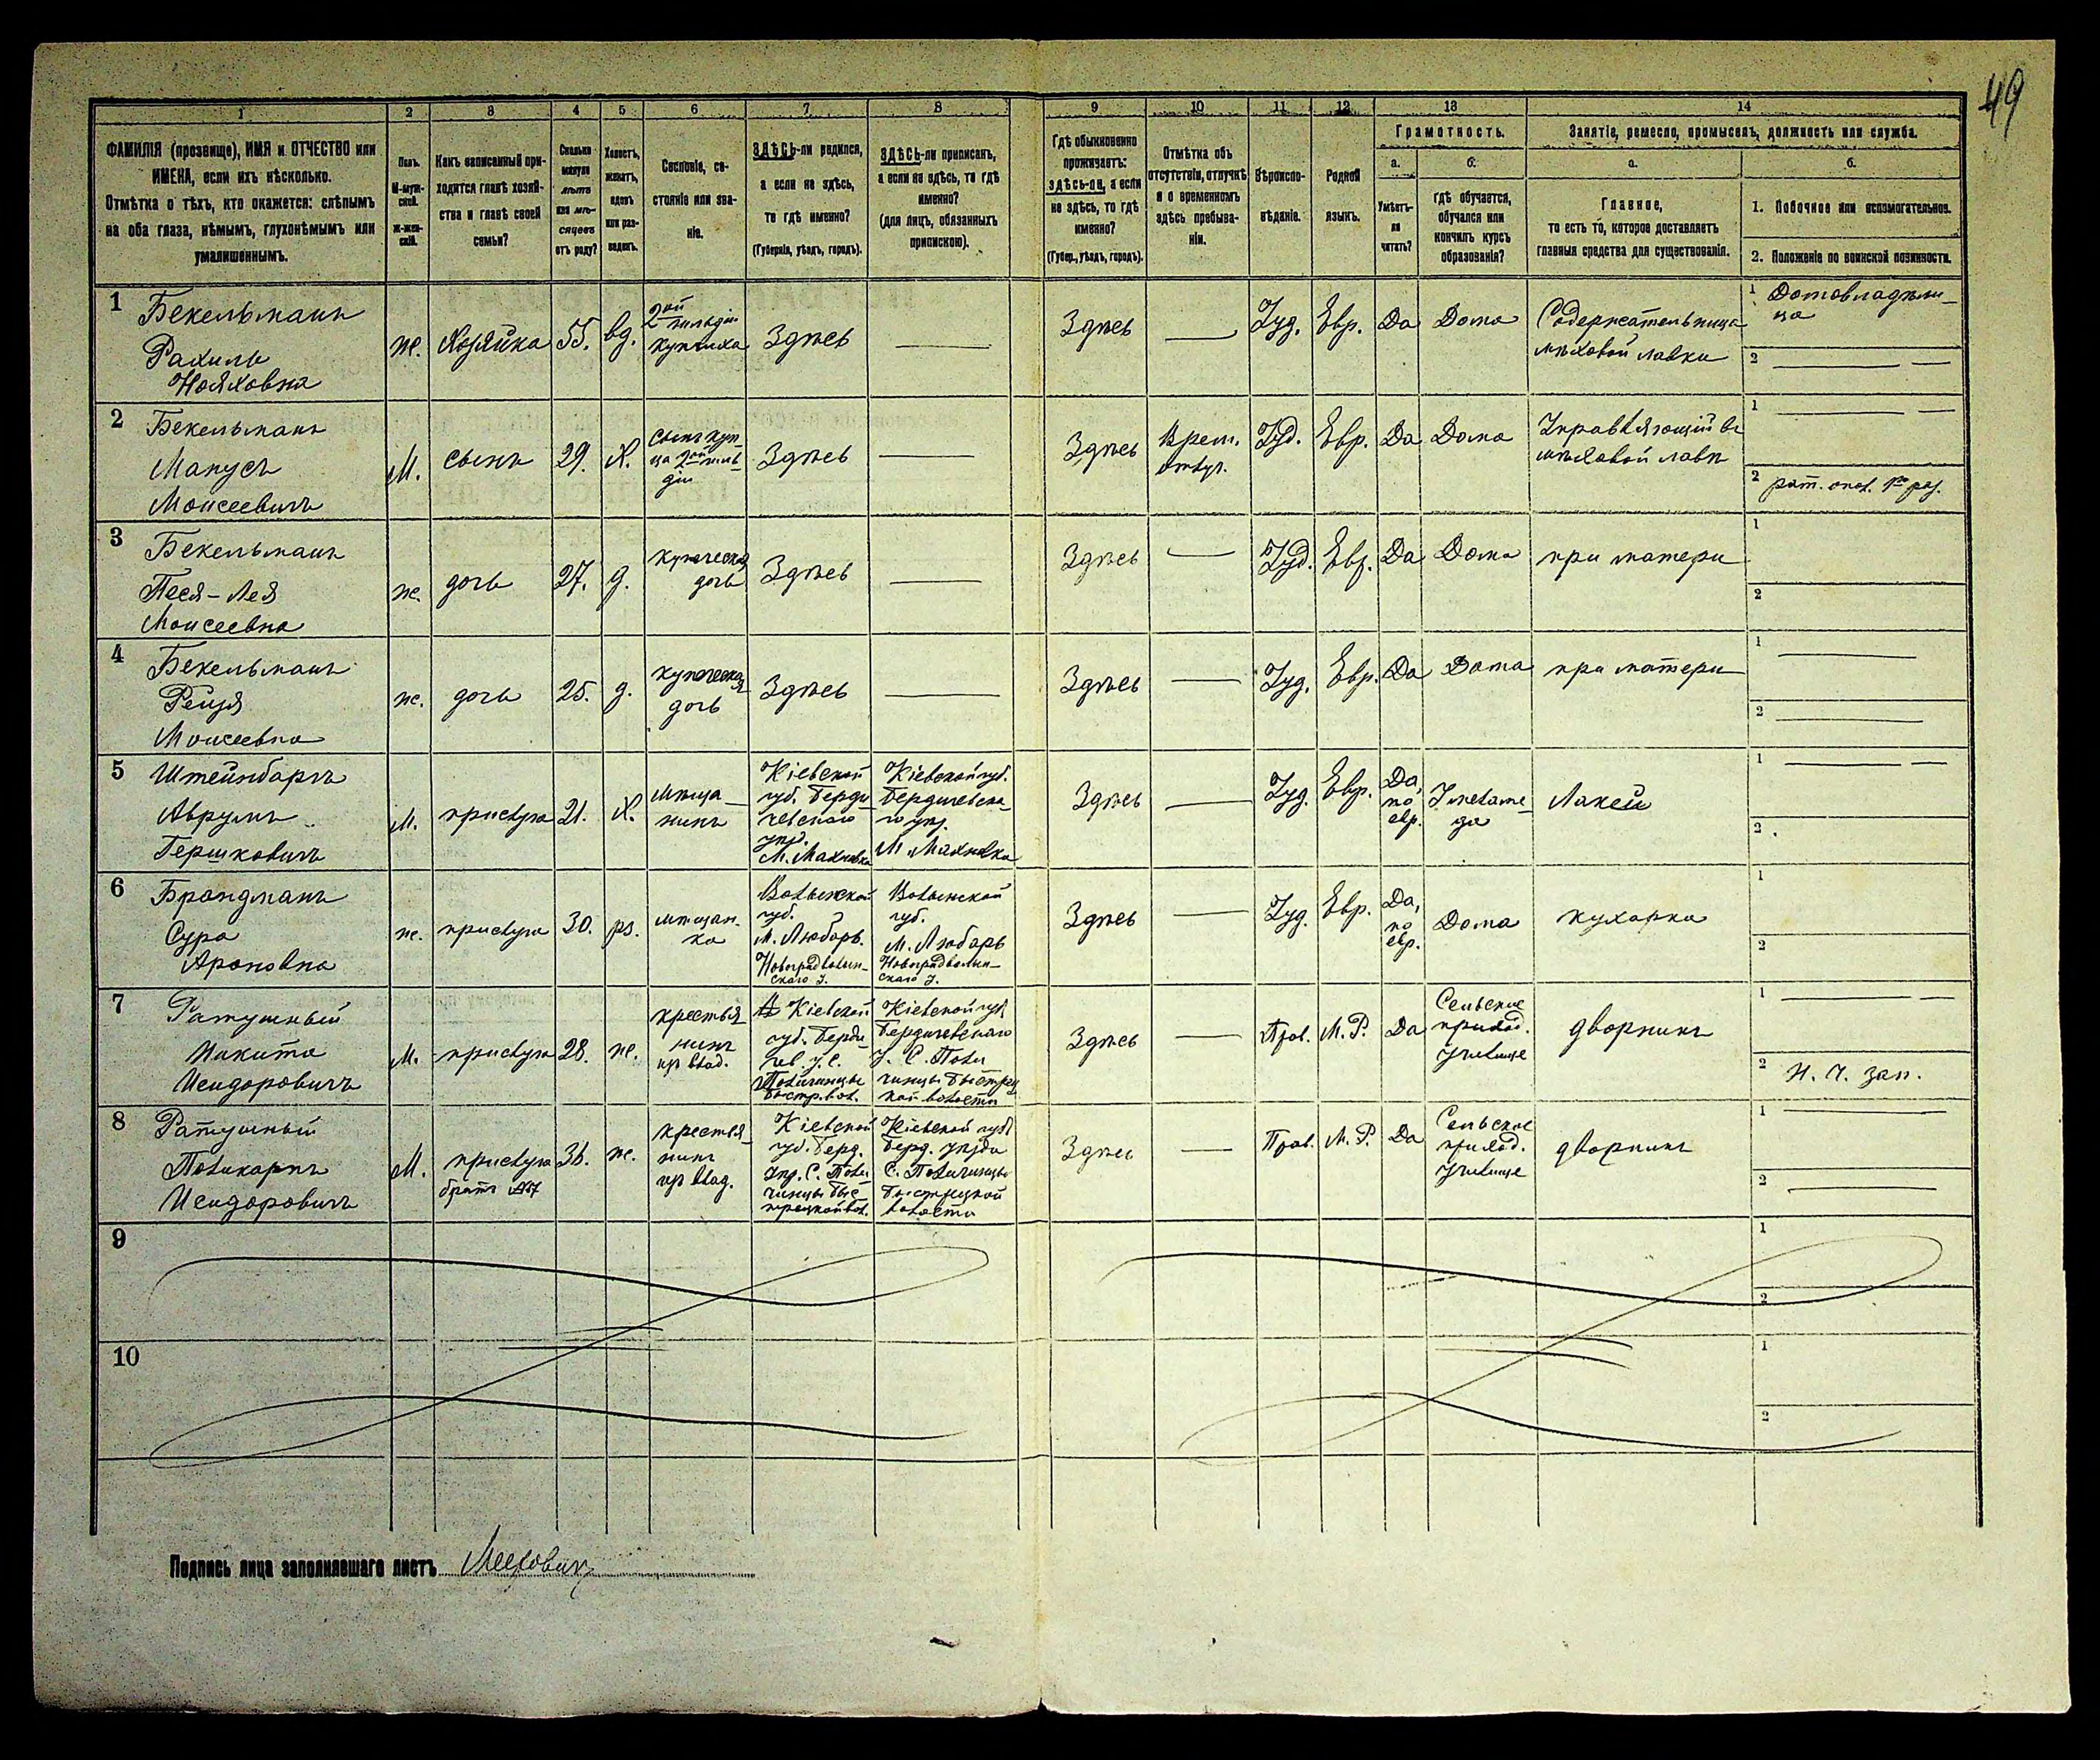 49
1 2 3 4 5 6 7 8 9 10 11 12 13 14
ФАМИЛІЯ (прозвище), ИМЯ и ОТЧЕСТВО или
ИМЕНА, если ихъ нѣсколько.
Отмѣтка о тѣхъ, кто окажется: слѣпымъ
на оба глаза, нѣмымъ, глухонѣмымъ или
умалишеннымъ.
Полъ.
М-муж-
ской.
Ж-жен-
скій.
Какъ записанный при-
ходится главѣ хозяй-
ства и главѣ своей
семьи?
Сколько
минуло
лѣтъ
или мѣ-
сяцевъ
отъ роду?
Холостъ,
женатъ,
вдовъ
или раз-
веденъ.
Сословіе, со-
стояніе или зва-
ніе.
ЗДѢСЬ-ли родился,
а если не здѣсь,
то гдѣ именно?
(Губернія, уѣздъ, городъ).
ЗДѢСЬ-ли приписанъ,
а если не здѣсь, то гдѣ
именно?
(для лицъ, обязанныхъ
припискою).
Гдѣ обыкновенно
проживаетъ:
здѣсь-ли, а если
не здѣсь, то гдѣ
именно?
(Губер., уѣздъ, городъ).
Отмѣтка объ
отсутствіи, отлучкѣ
и о временномъ
здѣсь пребыва-
ніи.
Вѣроиспо-
вѣданіе.
Родной
языкъ.
Грамотность.
а.
Умѣетъ-
ли
читать?
б.
гдѣ обучается,
обучался или
кончилъ курсъ
образованія?
Занятіе, ремесло, промыселъ, должность или служба.
а.
Главное,
то есть то, которое доставляетъ
главныя средства для существованія.
б.
1. Побочное или вспомогательное.
2. Положеніе по воинской повинности.
1
Бекельманъ
Рахиль
Нояховна
ж.
Хозяйка
55.
вд.
2ой
гильдіи
купчиха
Здѣсь
Здѣсь
Іуд.
Евр.
Да
Дома
Содержательница
мѣховой лавки
1 Домовладѣли-
ца
2
2
Бекельманъ
Манусъ
Моисеевичъ
М.
сынъ
29.
Х.
сынъ куп-
ца 2ой гиль-
діи
Здѣсь
Здѣсь
Врем.
отлуч.
Іуд.
Евр.
Да
Дома
Управляющій въ
мѣховой лавкѣ
1
2 рат. опол. 1го раз.
3
Бекельманъ
Песя-Лея
Моисеевна
ж.
дочь
27.
д.
купеческая
дочь
Здѣсь
Здѣсь
Іуд.
Евр.
Да
Дома
при матери
1
2
4
Бекельманъ
Рейзя
Моисеевна
ж.
дочь
25.
д.
купеческая
дочь
Здѣсь
Здѣсь
Іуд.
Евр.
Да
Дома
при матери
1
2
5
Штейнбаргъ
Аврумъ
Гершковичъ
М.
прислуга
21.
Х.
мѣща-
нинъ
Кіевской
губ. Берди-
чевскаго
уѣзд.
М. Махновка
Кіевской губ.
Бердичевска-
го уѣз.
М. Махновка
Здѣсь
Іуд.
Евр.
Да,
по
евр.
У меламе-
да
Лакей
1
2
6
Брандманъ
Сура
Ароновна
ж.
прислуга
30.
рз.
мѣщан-
ка
Волынской
губ.
М. Любаръ.
Новоградволын-
скаго у.
Волынской
губ.
М. Любаръ
Новоградволын-
скаго у.
Здѣсь
Іуд.
Евр.
Да,
по
евр.
Дома
кухарка
1
2
7
Ратушный
Никита
Исидоровичъ
М.
прислуга
28.
ж.
крестья-
нинъ
из влад.
Кіевской
губ. Берди-
чев. у. С.
Поличинцы
Быстр. вол.
Кіевской губ.
Бердичевскаго
у. С. Поли-
чинцы Быстриц-
кой волости
Здѣсь
Прав.
М. Р.
Да
Сельское
приход.
училище
дворникъ
1
2 Н. Ч. зап.
8
Ратушный
Поликарпъ
Исидоровичъ
М.
прислуга
братъ №7
36.
ж.
крестья-
нинъ
из влад.
Кіевской
губ. Берд.
уѣзд. С. Поли-
чинцы Быс-
трецкой вол.
Кіевской губ.
Берд. уѣзда
С. Поличинцы
Быстрецкой
волости
Здѣсь
Прав.
М. Р.
Да
Сельское
приход.
училище
дворникъ
1
2
9
1
2
10
1
2
Подпись лица заполнявшаго листъ